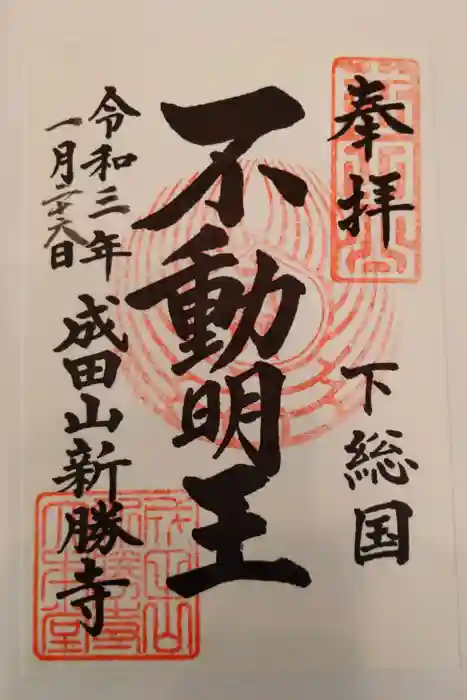 奉拝
下総国
不動明王
令和三年
一月二十六日
成田山新勝寺